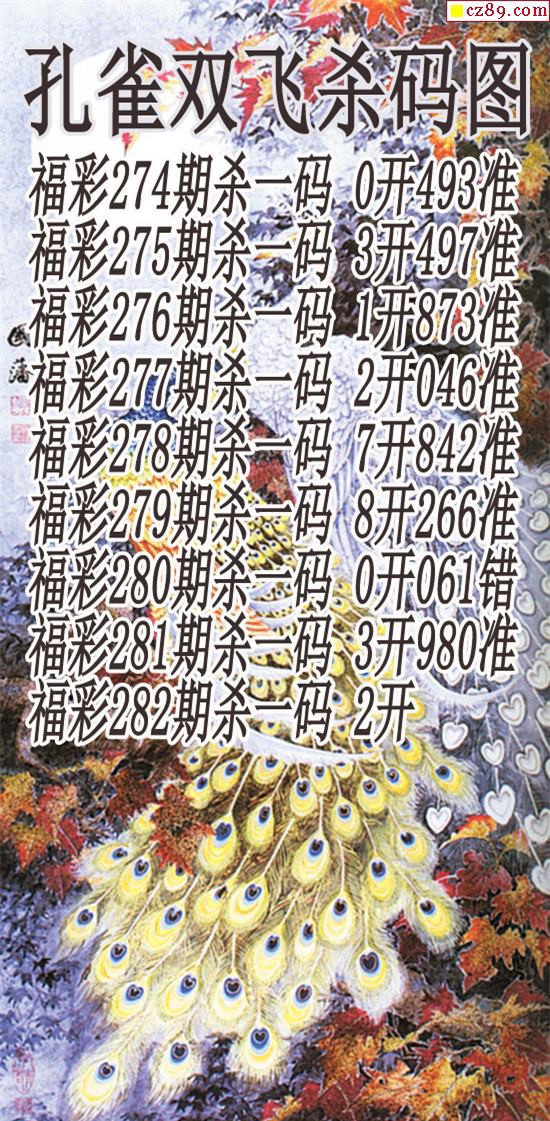 cz89.com
孔雀双飞杀码图
福彩274期杀一码 0开493准
福彩275期杀一码 3开497准
福彩276期杀一码 1开873准
福彩277期杀一码 2开046准
福彩278期杀一码 7开842准
福彩279期杀一码 8开266准
福彩280期杀一码 0开061错
福彩281期杀一码 3开980准
福彩282期杀一码 2开